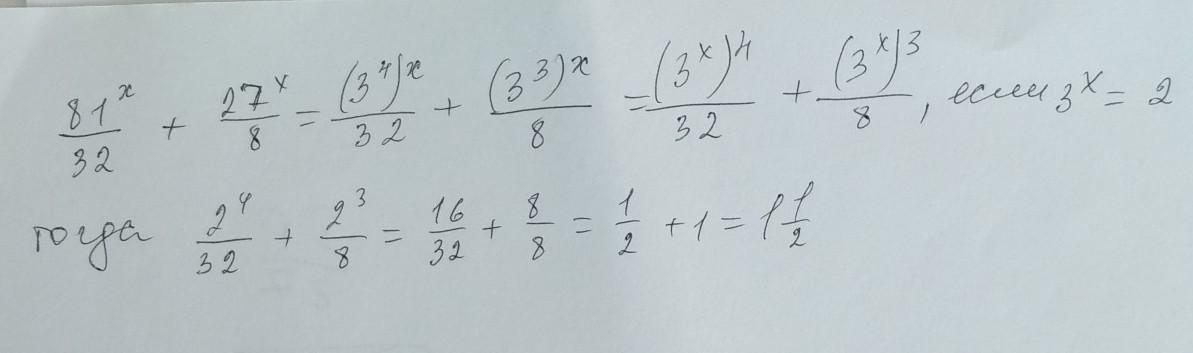 81^x/32 + 27^x/8 = (3^4)^x/32 + (3^3)^x/8 = (3^x)^4/32 + (3^x)^3/8, если 3^x = 2
тогда 2^4/32 + 2^3/8 = 16/32 + 8/8 = 1/2 + 1 = 1 1/2